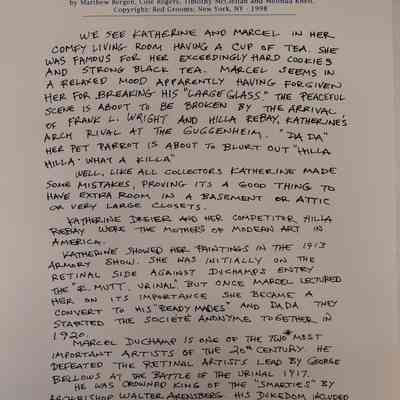 by Matthew Bergen, Cole Rogers, Timothy McClellan and Melinda Knell.
Copyright: Red Grooms: New York, NY - 1998
WE SEE KATHERINE AND MARCEL IN HER
COMFY LIVING ROOM HAVING A CUP OF TEA. SHE
WAS FAMOUS FOR HER EXCEEDINGLY HARD COOKIES
AND STRONG BLACK TEA. MARCEL SEEMS IN
A RELAXED MOOD APPARENTLY HAVING FORGIVEN
HER FOR BREAKING HIS "LARGE GLASS." THE PEACEFUL
SCENE IS ABOUT TO BE BROKEN BY THE ARRIVAL
OF FRANK L. WRIGHT AND HILLA REBAY, KATHERINE'S
ARCH RIVAL AT THE GUGGENHEIM. "DA DA"
HER PET PARROT IS ABOUT TO BLURT OUT "HILLA
HILLA · WHAT A KILLA"
WELL, LIKE ALL COLLECTORS KATHERINE MADE
SOME MISTAKES, PROVING ITS A GOOD THING TO
HAVE EXTRA ROOM IN A BASEMENT OR ATTIC
OR VERY LARGE CLOSETS.
KATHERINE DREIER AND HER COMPETITOR HILLA
REBAY WERE THE MOTHERS OF MODERN ART IN
AMERICA.
KATHERINE SHOWED HER PAINTINGS IN THE 1913
ARMORY SHOW. SHE WAS INITIALLY ON THE
RETINAL SIDE AGAINST DUCHAMPS ENTRY
THE "R. MUTT. URINAL". BUT ONCE MARCEL LECTURED
HER ON ITS IMPORTANCE SHE BECAME A
CONVERT TO HIS "READY MADES" AND DADA. THEY
STARTED THE SOCIETÉ ANONYME TOGETHER IN
1920.
MARCEL DUCHAMP IS ONE OF THE TWO MOST
IMPORTANT ARTISTS OF THE 20th CENTURY. HE
DEFEATED THE RETINAL ARTISTS LEAD BY GEORGE
BELLOWS AT THE BATTLE OF THE URINAL 1917.
HE WAS CROWNED KING OF THE "SMARTIES" BY
ARCHBISHOP WALTER ARENSBERG. HIS DUKEDOM INCLUDED